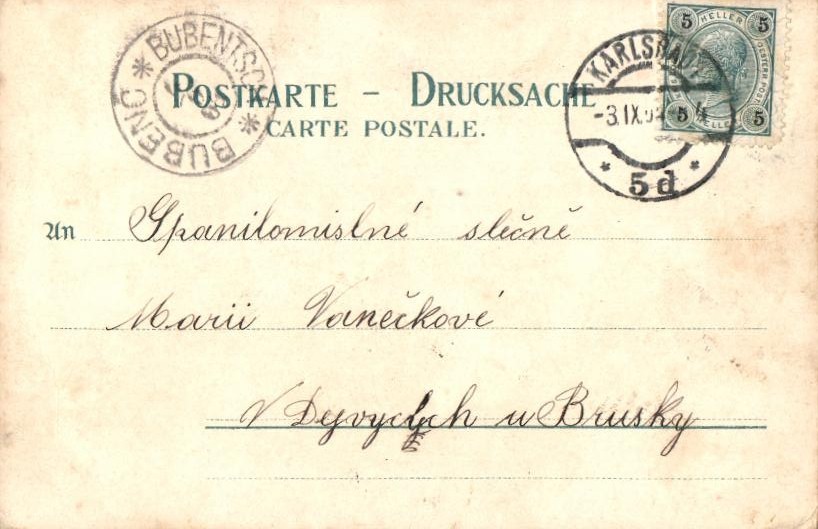 BUBENTSCH * BUBENČ *
POSTKARTE – DRUCKSACHE
CARTE POSTALE.
KARLSBAD
-3.IX.
* 5d *
5 HELLER 5
5 HELLER 5
An Spanilomislné slečně
Marii Vanečkové
V Dejvycých u Brusky